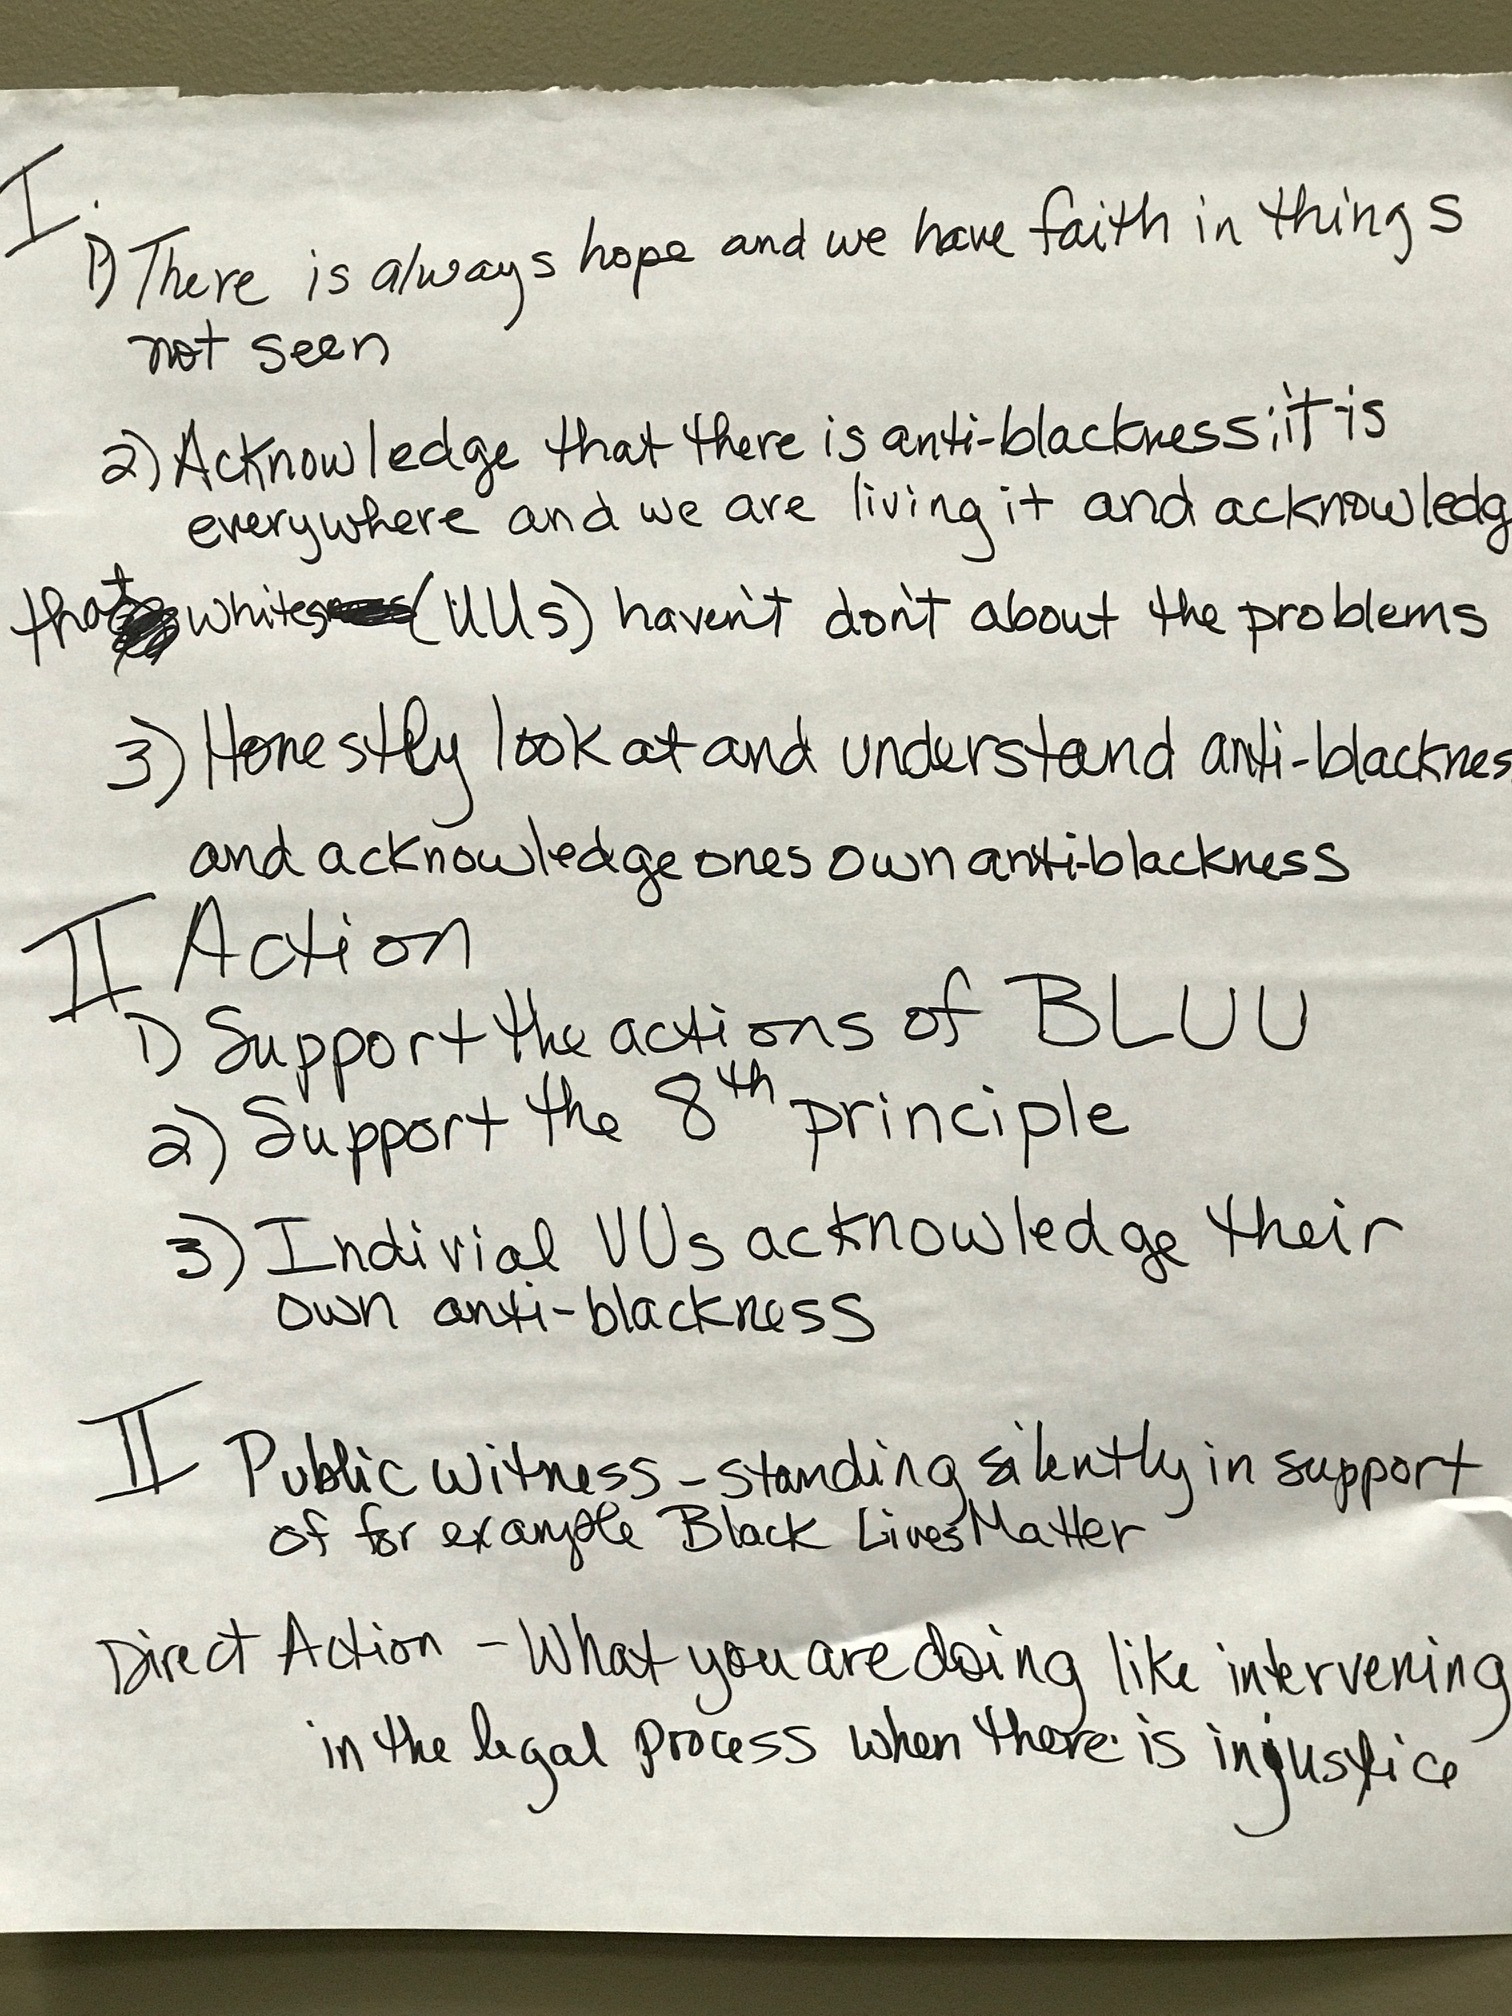 I.
1) There is always hope and we have faith in things
not seen
2) Acknowledge that there is anti-blackness; it is
everywhere and we are living it and acknowledg
that whites (UUs) haven't don't about the problems
3) Honestly look at and understand anti-blacknes
and acknowledge ones own anti-blackness
II Action
1) Support the actions of BLUU
2) Support the 8th principle
3) Indivial UUs acknowledge their
own anti-blackness
II Public witness - standing silently in support
of for example Black Lives Matter
Direct Action - What you are doing like intervening
in the legal process when there is injustice